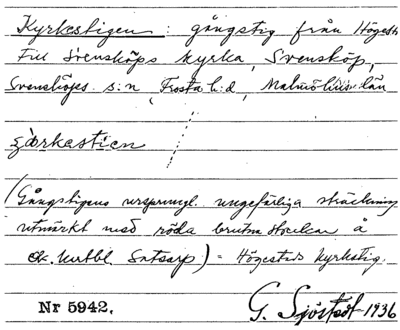 Kyrkestigen : gångstig från Högest
till Svensköps kyrka, Svensköp,
Svensköps s:n, Frosta h:d, Malmöhus län
(Gångstigens ursprungl. ungefärliga sträckning
utmärkt med röda brutna streckar å
ek. kartbl. Satsarp) = Högestads kyrkstig.
Nr 5942.
G. Sjöstedt 1936